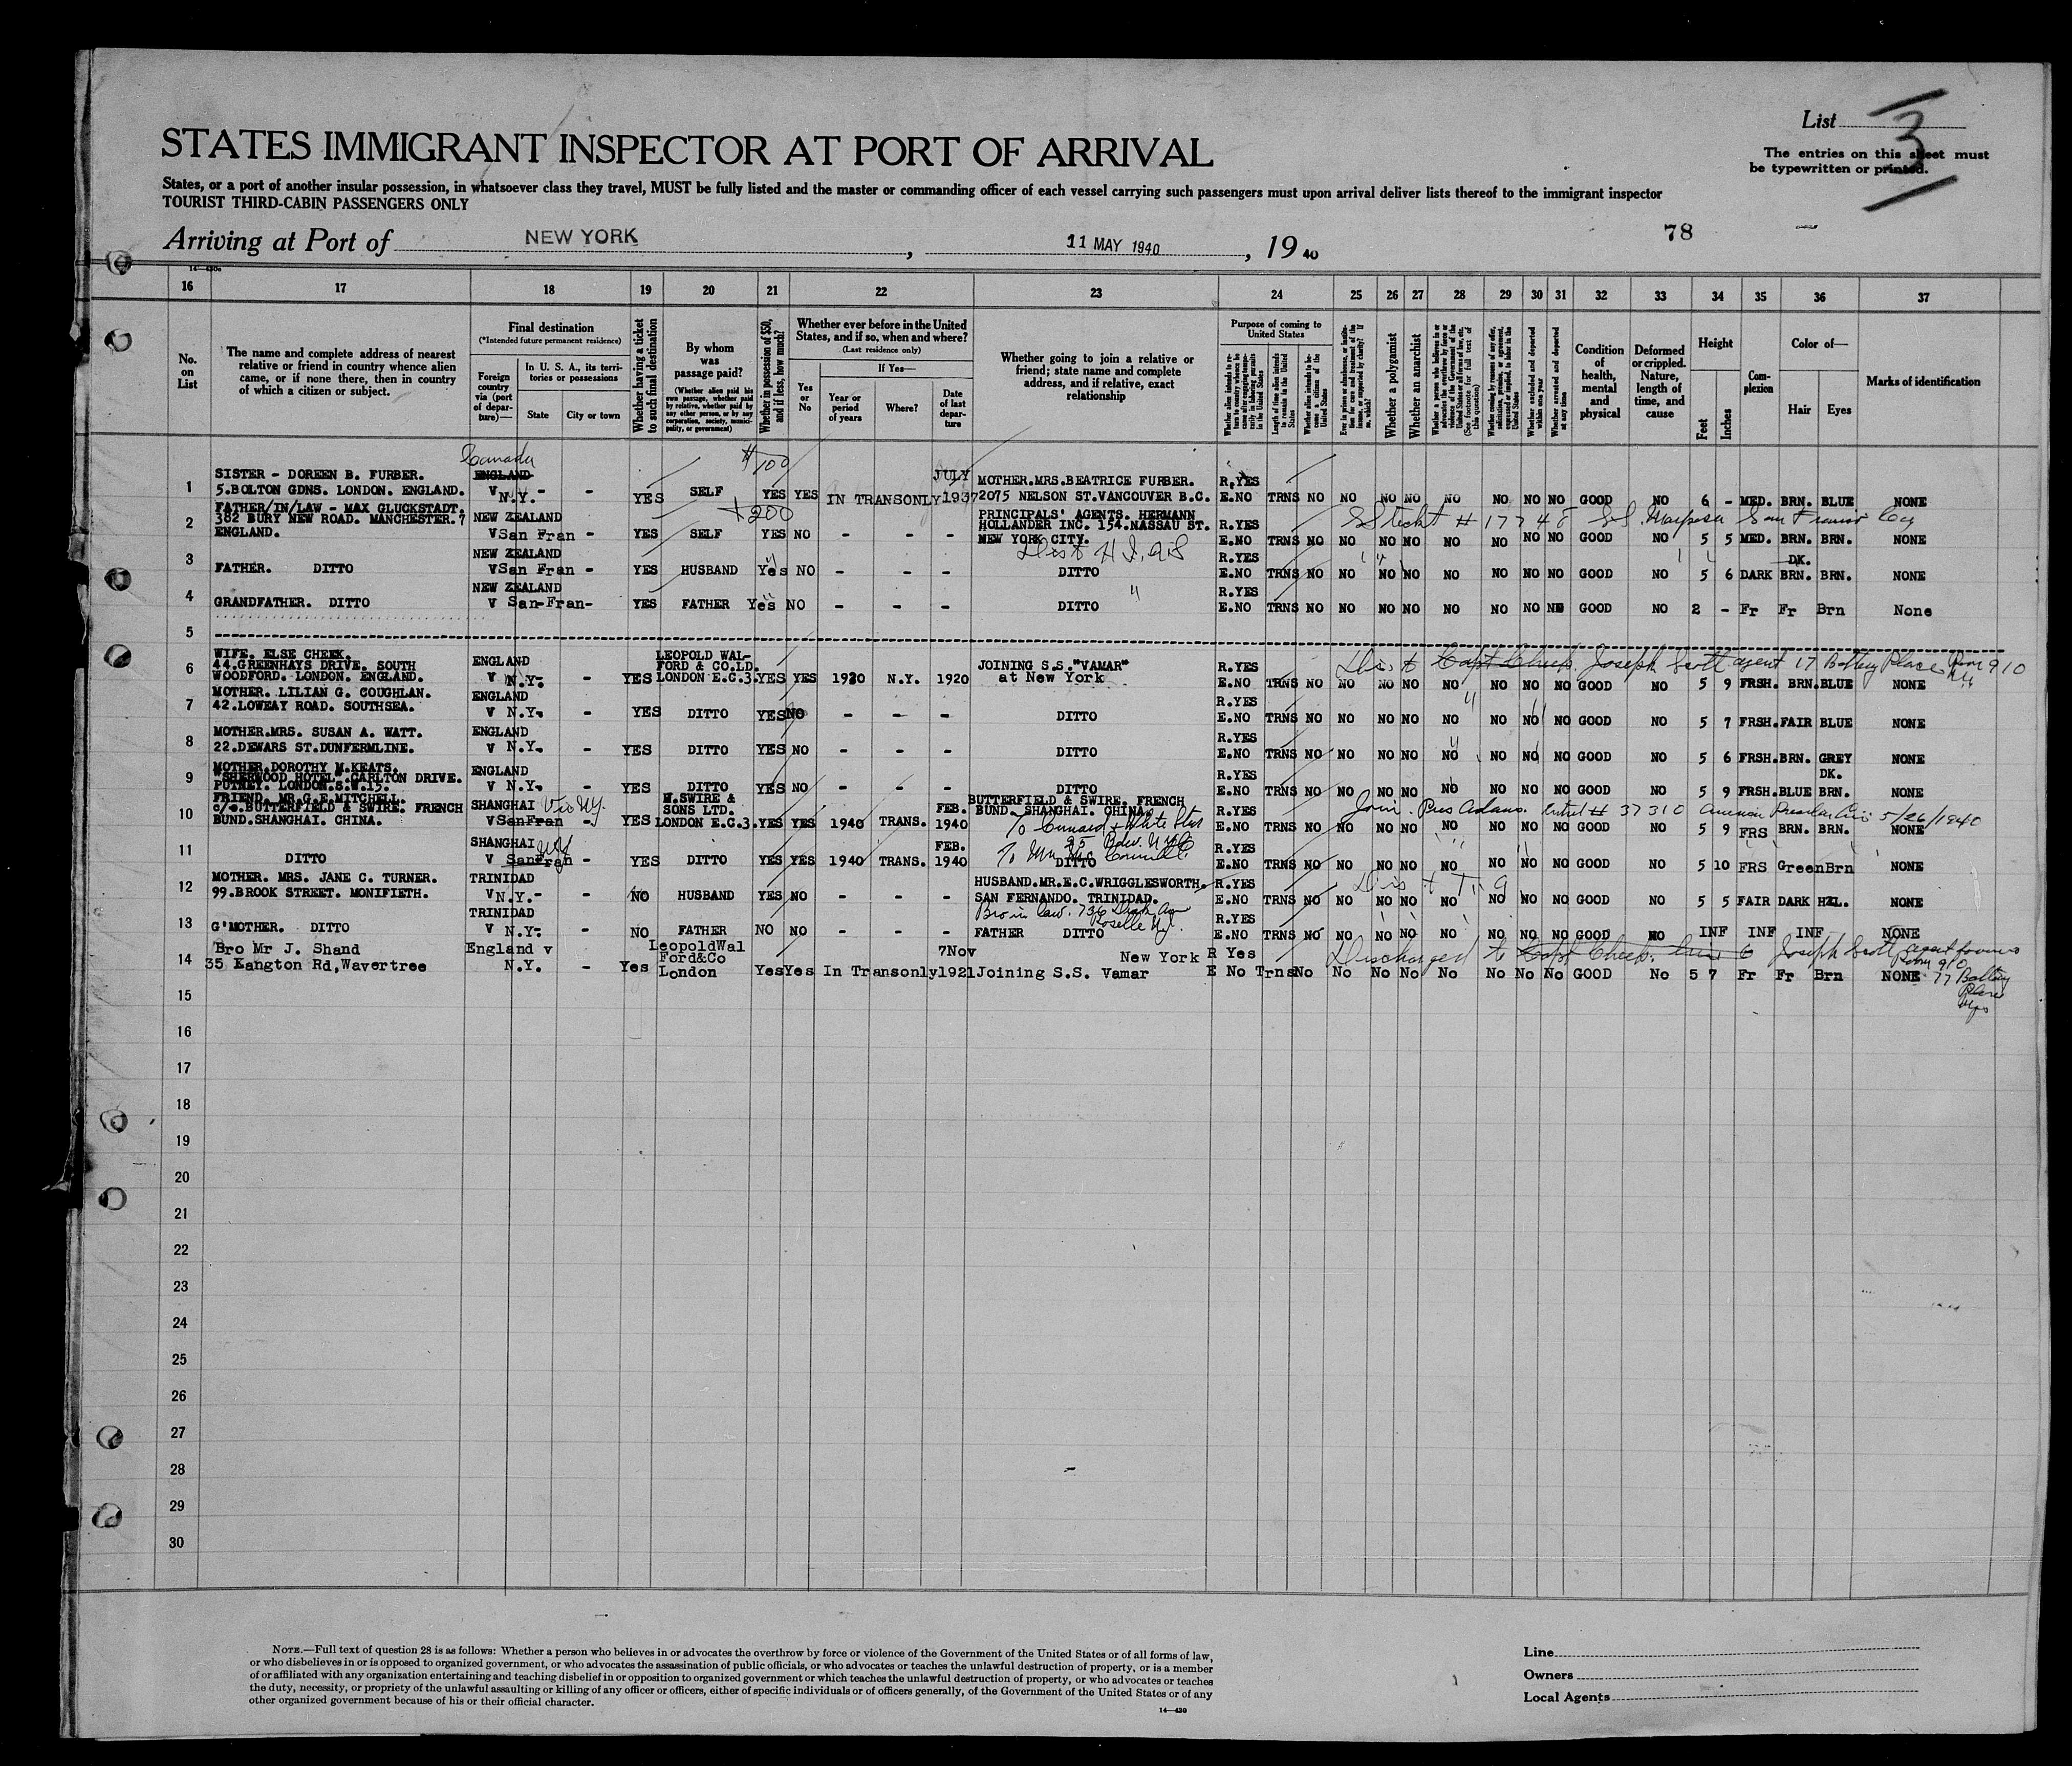 List 3
STATES IMMIGRANT INSPECTOR AT PORT OF ARRIVAL
The entries on this sheet must
be typewritten or printed.
States, or a port of another insular possession, in whatsoever class they travel, MUST be fully listed and the master or commanding officer of each vessel carrying such passengers must upon arrival deliver lists thereof to the immigrant inspector
TOURIST THIRD-CABIN PASSENGERS ONLY
78
Arriving at Port of NEW YORK, 11 MAY 1940, 19 40
16 17 18 19 20 21 22 23 24 25 26 27 28 29 30 31 32 33 34 35 36 37
No. on List
The name and complete address of nearest relative or friend in country whence alien came, or if none there, then in country of which a citizen or subject.
Final destination
(*Intended future permanent residence)
Foreign country via (port of departure)—
In U. S. A., its territories or possessions
State City or town
Whether having a ticket to such final destination
By whom was passage paid?
(Whether alien paid his own passage, whether paid by relative, whether paid by any other person, or by any corporation, society, municipality, or government)
Whether in possession of $50, and if less, how much?
Whether ever before in the United States, and if so, when and where?
(Last residence only)
Yes or No
If Yes—
Year or period of years Where? Date of last departure
Whether going to join a relative or friend; state name and complete address, and if relative, exact relationship
Purpose of coming to United States
Whether a polygamist
Whether an anarchist
Condition of health, mental and physical
Deformed or crippled. Nature, length of time, and cause
Height
Feet Inches
Complexion
Color of—
Hair Eyes
Marks of identification
Canada $100
1 SISTER - DOREEN B. FURBER. ENGLAND JULY MOTHER.MRS.BEATRICE FURBER. R.YES
5.BOLTON GDNS. LONDON. ENGLAND. V N.Y.- - YES SELF YES YES IN TRANSONLY 1937 2075 NELSON ST.VANCOUVER B.C. E.NO TRNS NO NO NO NO NO NO NO NO GOOD NO 6 - MED. BRN. BLUE NONE
2 FATHER/IN/LAW - MAX GLUCKSTADT. $200 PRINCIPALS' AGENTS. HERMANN
382 BURY NEW ROAD. MANCHESTER.7 NEW ZEALAND HOLLANDER INC. 154.NASSAU ST. R.YES SS tickt # 17748 SS. Mariposa San Francisco
ENGLAND. V San Fran - YES SELF YES NO - - - NEW YORK CITY. E.NO TRNS NO NO NO NO NO NO NO NO GOOD NO 5 5 MED. BRN. BRN. NONE
3 NEW ZEALAND R.YES DK.
FATHER. DITTO V San Fran - YES HUSBAND Yes NO - - - DITTO E.NO TRNS NO NO NO NO NO NO NO NO GOOD NO 5 6 DARK BRN. BRN. NONE
4 NEW ZEALAND R.YES
GRANDFATHER. DITTO V San-Fran- YES FATHER Yes NO - - - DITTO E.NO TRNS NO NO NO NO NO NO NO NO GOOD NO 2 - Fr Fr Brn None
5
6 WIFE. ELSE CHEEK. LEOPOLD WAL-
44.GREENHAYS DRIVE. SOUTH ENGLAND FORD & CO.LD. JOINING S.S."VAMAR" R.YES Dis to Capt Cheek. Joseph Scott agent 17 Battery Place Rm 910
WOODFORD. LONDON. ENGLAND. V N.Y.- - YES LONDON E.C.3. YES YES 1920 N.Y. 1920 at New York E.NO TRNS NO NO NO NO NO NO NO NO GOOD NO 5 9 FRSH. BRN. BLUE NONE
7 MOTHER. LILIAN G. COUGHLAN. ENGLAND R.YES
42.LOWEAY ROAD. SOUTHSEA. V N.Y. - YES DITTO YES NO - - - DITTO E.NO TRNS NO NO NO NO NO NO NO NO GOOD NO 5 7 FRSH. FAIR BLUE NONE
8 MOTHER.MRS. SUSAN A. WATT. ENGLAND R.YES
22.DEWARS ST.DUNFERMLINE. V N.Y. - YES DITTO YES NO - - - DITTO E.NO TRNS NO NO NO NO NO NO NO NO GOOD NO 5 6 FRSH. BRN. GREY NONE
9 MOTHER.DOROTHY M.KEATS.
"SHERWOOD HOTEL".CARLTON DRIVE. ENGLAND R.YES DK.
PUTNEY. LONDON.S.W.15. V N.Y. - YES DITTO YES NO - - - DITTO E.NO TRNS NO NO NO NO NO NO NO NO GOOD NO 5 9 FRSH. BLUE BRN. NONE
10 FRIEND. MR.G.E.MITCHELL. W.SWIRE & BUTTERFIELD & SWIRE. FRENCH
c/o.BUTTERFIELD & SWIRE. FRENCH SHANGHAI Via NY. SONS LTD. FEB. BUND. SHANGHAI. CHINA. R.YES Join. Pres Adams. # 37310 American President 5/26/1940
BUND.SHANGHAI. CHINA. V SanFran - YES LONDON E.C.3. YES YES 1940 TRANS. 1940 To Cunard & White Star E.NO TRNS NO NO NO NO NO NO NO NO GOOD NO 5 9 FRS BRN. BRN. NONE
25 Bdw. NYC
11 SHANGHAI NY FEB. R.YES
DITTO V SanFran - YES DITTO YES YES 1940 TRANS. 1940 DITTO E.NO TRNS NO NO NO NO NO NO NO NO GOOD NO 5 10 FRS Green Brn NONE
12 MOTHER. MRS. JANE C. TURNER. TRINIDAD HUSBAND.MR.E.C.WRIGGLESWORTH. R.YES
99.BROOK STREET. MONIFIETH. V N.Y.- - NO HUSBAND YES NO - - - SAN FERNANDO. TRINIDAD. E.NO TRNS NO NO NO NO NO NO NO NO GOOD NO 5 5 FAIR DARK HZL. NONE
Bro in law. 736
Roselle NJ.
13 TRINIDAD R.YES
G'MOTHER. DITTO V N.Y. - NO FATHER NO NO - - - FATHER DITTO E.NO TRNS NO NO NO NO NO NO NO NO GOOD NO INF INF INF NONE
14 Bro Mr J. Shand England v LeopoldWal 7Nov New York R Yes Discharged to Capt Cheek. Joseph Scott agent
35 Kangton Rd,Wavertree N.Y. - Yes Ford&Co London Yes Yes In Transonly 1921 Joining S.S. Vamar E No Trns No No No No No No No No GOOD No 5 7 Fr Fr Brn NONE
Room 910
17 Battery
Place
15
16
17
18
19
20
21
22
23
24
25
26
27
28
29
30
NOTE.—Full text of question 28 is as follows: Whether a person who believes in or advocates the overthrow by force or violence of the Government of the United States or of all forms of law,
or who disbelieves in or is opposed to organized government, or who advocates the assassination of public officials, or who advocates or teaches the unlawful destruction of property, or is a member
of or affiliated with any organization entertaining and teaching disbelief in or opposition to organized government or which teaches the unlawful destruction of property, or who advocates or teaches
the duty, necessity, or propriety of the unlawful assaulting or killing of any officer or officers, either of specific individuals or of officers generally, of the Government of the United States or of any
other organized government because of his or their official character.
14—430
Line
Owners
Local Agents